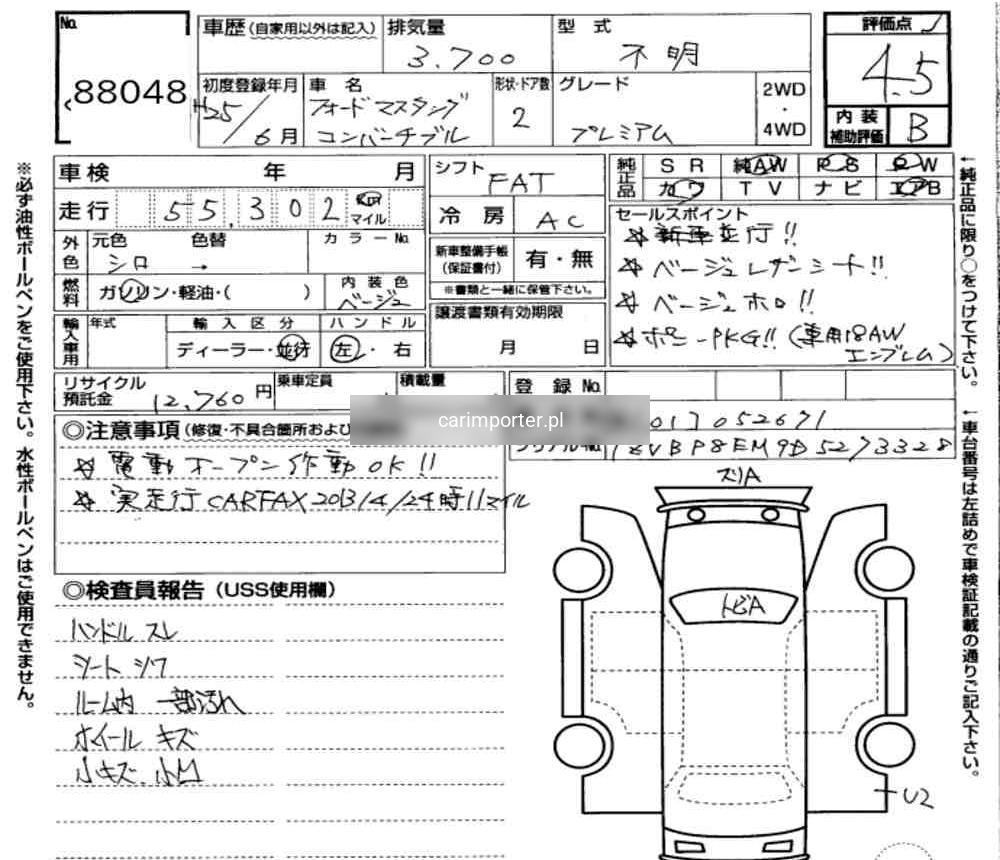 No.
88048
車歴 (自家用以外は記入)
排気量
3.700
型式
不明
評価点
4.5
内装
補助評価
B
初度登録年月
H25/6月
車名
フォード マスタング
コンバーチブル
形状・ドア数
2
グレード
プレミアム
2WD
・
4WD
車検 年 月
シフト
FAT
純正品
SR 純AW PS PW
カワ TV ナビ エアB
走行 55,302 km
マイル
冷房
AC
セールスポイント
☆新車並行!!
☆ベージュレザーシート!!
☆ベージュホロ!!
☆ポニーPKG!! (専用18AW
エンブレム)
外色
元色 シロ
色替 →
カラーNo.
新車整備手帳
(保証書付)
有・無
※書類と一緒に保管下さい。
燃料
ガソリン・軽油・( )
内装色
ベージュ
譲渡書類有効期限
月 日
輸入車用
年式
輸入区分
ディーラー・並行
ハンドル
左・右
リサイクル
預託金
12,760円
乗車定員
積載量
登録No.
carimporter.pl
◎注意事項 (修復・不具合箇所および
☆電動オープン作動OK!!
☆実走行CARFAX2013/4/24時11マイル
◎検査員報告 (USS使用欄)
ハンドル スレ
シート シワ
ルーム内 一部汚れ
ホイール キズ
小キズ、小凹
ズリA
トビA
U2
※必ず油性ボールペンをご使用下さい。水性ボールペンはご使用できません。
←純正品に限り○をつけて下さい。
←車台番号は左詰めで車検証記載の通りご記入下さい。